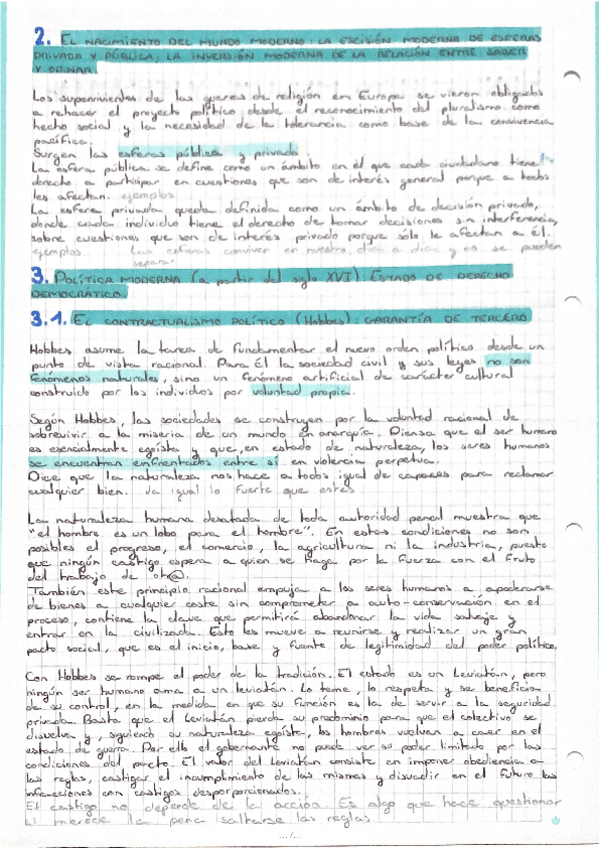 2. EL NACIMIENTO DEL MUNDO MODERNO: LA ESCISIÓN MODERNA DE ESFERAS
PRIVADA Y PÚBLICA, LA INVERSIÓN MODERNA DE LA RELACIÓN ENTRE SABER
Y OPINAR.
Los supervivientes de las guerras de religión en Europa se vieron obligados
a rehacer el proyecto político desde el reconocimiento del pluralismo como
hecho social y la necesidad de la tolerancia como base de la convivencia
pacífica.
Surgen las esferas pública y privada.
La esfera pública se define como un ámbito en el que cada ciudadano tiene
derecho a participar en cuestiones que son de interés general porque a todos
les afectan. ejemplos
La esfera privada queda definida como un ámbito de decisión privado,
donde cada individuo tiene el derecho de tomar decisiones sin interferencia,
sobre cuestiones que son de interés privado porque sólo le afectan a él.
ejemplos Las esferas conviven en nuestro día a día y no se pueden
separar
3. POLÍTICA MODERNA (a partir del siglo XVI): ESTADO DE DERECHO
DEMOCRÁTICO.
3.1. EL CONTRACTUALISMO POLÍTICO (Hobbes): GARANTÍA DE TERCERO
Hobbes asume la tarea de fundamentar el nuevo orden político desde un
punto de vista racional. Para Él la sociedad civil y sus leyes no son
fenómenos naturales, sino un fenómeno artificial de carácter cultural
construido por los individuos por voluntad propia.
Según Hobbes, las sociedades se construyen por la voluntad racional de
sobrevivir a la miseria de un mundo en anarquía. Piensa que el ser humano
es esencialmente egoísta y que, en estado de naturaleza, los seres humanos
se encuentran enfrentados entre sí en violencia perpetua.
Dice que la naturaleza nos hace a todos igual de capaces para reclamar
cualquier bien. da igual lo fuerte que estés
La naturaleza humana desatada de toda autoridad penal muestra que
"el hombre es un lobo para el hombre". En estas condiciones no son
posibles el progreso, el comercio, la agricultura ni la industria, puesto
que ningún castigo espera a quien se haga por la fuerza con el fruto
del trabajo de otr@.
También este principio racional empuja a los seres humanos a apoderarse
de bienes a cualquier coste sin comprometer a auto-conservación en el
proceso, contiene la clave que permitirá abandonar la vida salvaje y
entrar en la civilizada. Esto les mueve a reunirse y realizar un gran
pacto social, que es el inicio, base y fuente de legitimidad del poder político.
Con Hobbes se rompe el poder de la tradición. El estado es un Leviatán, pero
ningún ser humano ama a un leviatán. Lo teme, lo respeta y se beneficia
de su control, en la medida en que su función es la de servir a la seguridad
privada. Basta que el Leviatán pierda su predominio para que el colectivo se
disuelva y, siguiendo su naturaleza egoísta, los hombres vuelvan a caer en el
estado de guerra. Por ello el gobernante no puede ver su poder limitado por las
condiciones del pacto. El valor del Leviatán consiste en imponer obediencia a
las reglas, castigar el incumplimiento de las mismas y disuadir en el futuro las
infracciones con castigos desporporcionados.
El castigo no depende de la acción. Es algo que hace questionar
si merece la pena saltarse las reglas.